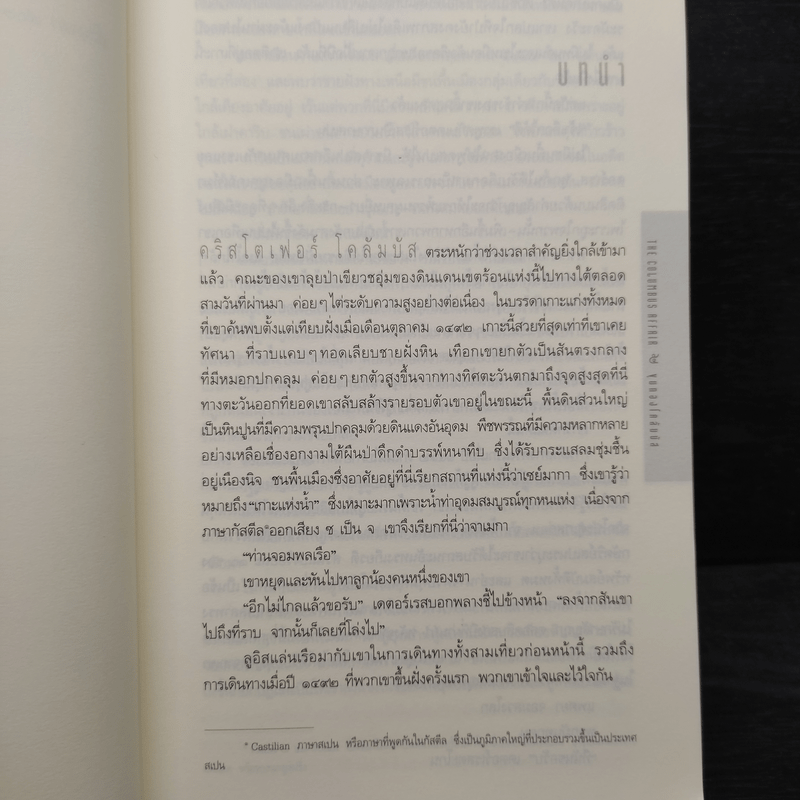 บทนำ
คริสโตเฟอร์ โคลัมบัส ตระหนักว่าช่วงเวลาสำคัญยิ่งใกล้เข้ามา
แล้ว คณะของเขาลุยป่าเขียวชอุ่มของดินแดนเขตร้อนแห่งนี้ไปทางใต้ตลอด
สามวันที่ผ่านมา ค่อยๆ ไต่ระดับความสูงอย่างต่อเนื่อง ในบรรดาเกาะแก่งทั้งหมด
ที่เขาค้นพบตั้งแต่เทียบฝั่งเมื่อเดือนตุลาคม ๑๔๙๒ เกาะนี้สวยที่สุดเท่าที่เขาเคย
ทัศนา ที่ราบแคบๆ ทอดเลียบชายฝั่งหิน เทือกเขายกตัวเป็นสันตรงกลาง
ที่มีหมอกปกคลุม ค่อยๆ ยกตัวสูงขึ้นจากทางทิศตะวันตกมาถึงจุดสูงสุดที่นี่
ทางตะวันออกที่ยอดเขาสลับสล้างรายรอบตัวเขาอยู่ในขณะนี้ พื้นดินส่วนใหญ่
เป็นหินปูนที่มีความพรุนปกคลุมด้วยดินแดงอันอุดม พืชพรรณที่มีความหลากหลาย
อย่างเหลือเชื่องอกงามใต้ผืนป่าดึกดำบรรพ์หนาทึบ ซึ่งได้รับกระแสลมชุ่มชื้น
อยู่เนืองนิจ ชนพื้นเมืองซึ่งอาศัยอยู่ที่นี่เรียกสถานที่แห่งนี้ว่าเซย์มากา ซึ่งเขารู้ว่า
หมายถึง “เกาะแห่งน้ำ” ซึ่งเหมาะมากเพราะน้ำท่าอุดมสมบูรณ์ทุกหนแห่ง เนื่องจาก
ภาษากัสตีล*ออกเสียง ซ เป็น จ เขาจึงเรียกที่นี่ว่าจาเมกา
“ท่านจอมพลเรือ”
เขาหยุดและหันไปหาลูกน้องคนหนึ่งของเขา
“อีกไม่ไกลแล้วขอรับ” เดตอร์เรสบอกพลางชี้ไปข้างหน้า “ลงจากสันเขา
ไปถึงที่ราบ จากนั้นก็เลยที่โล่งไป”
ลูอิสแล่นเรือมากับเขาในการเดินทางทั้งสามเที่ยวก่อนหน้านี้ รวมถึง
การเดินทางเมื่อปี ๑๔๙๒ ที่พวกเขาขึ้นฝั่งครั้งแรก พวกเขาเข้าใจและไว้ใจกัน
* Castilian ภาษาสเปน หรือภาษาที่พูดกันในกัสตีล ซึ่งเป็นภูมิภาคใหญ่ที่ประกอบรวมขึ้นเป็นประเทศ
สเปน
THE COLUMBUS AFFAIR